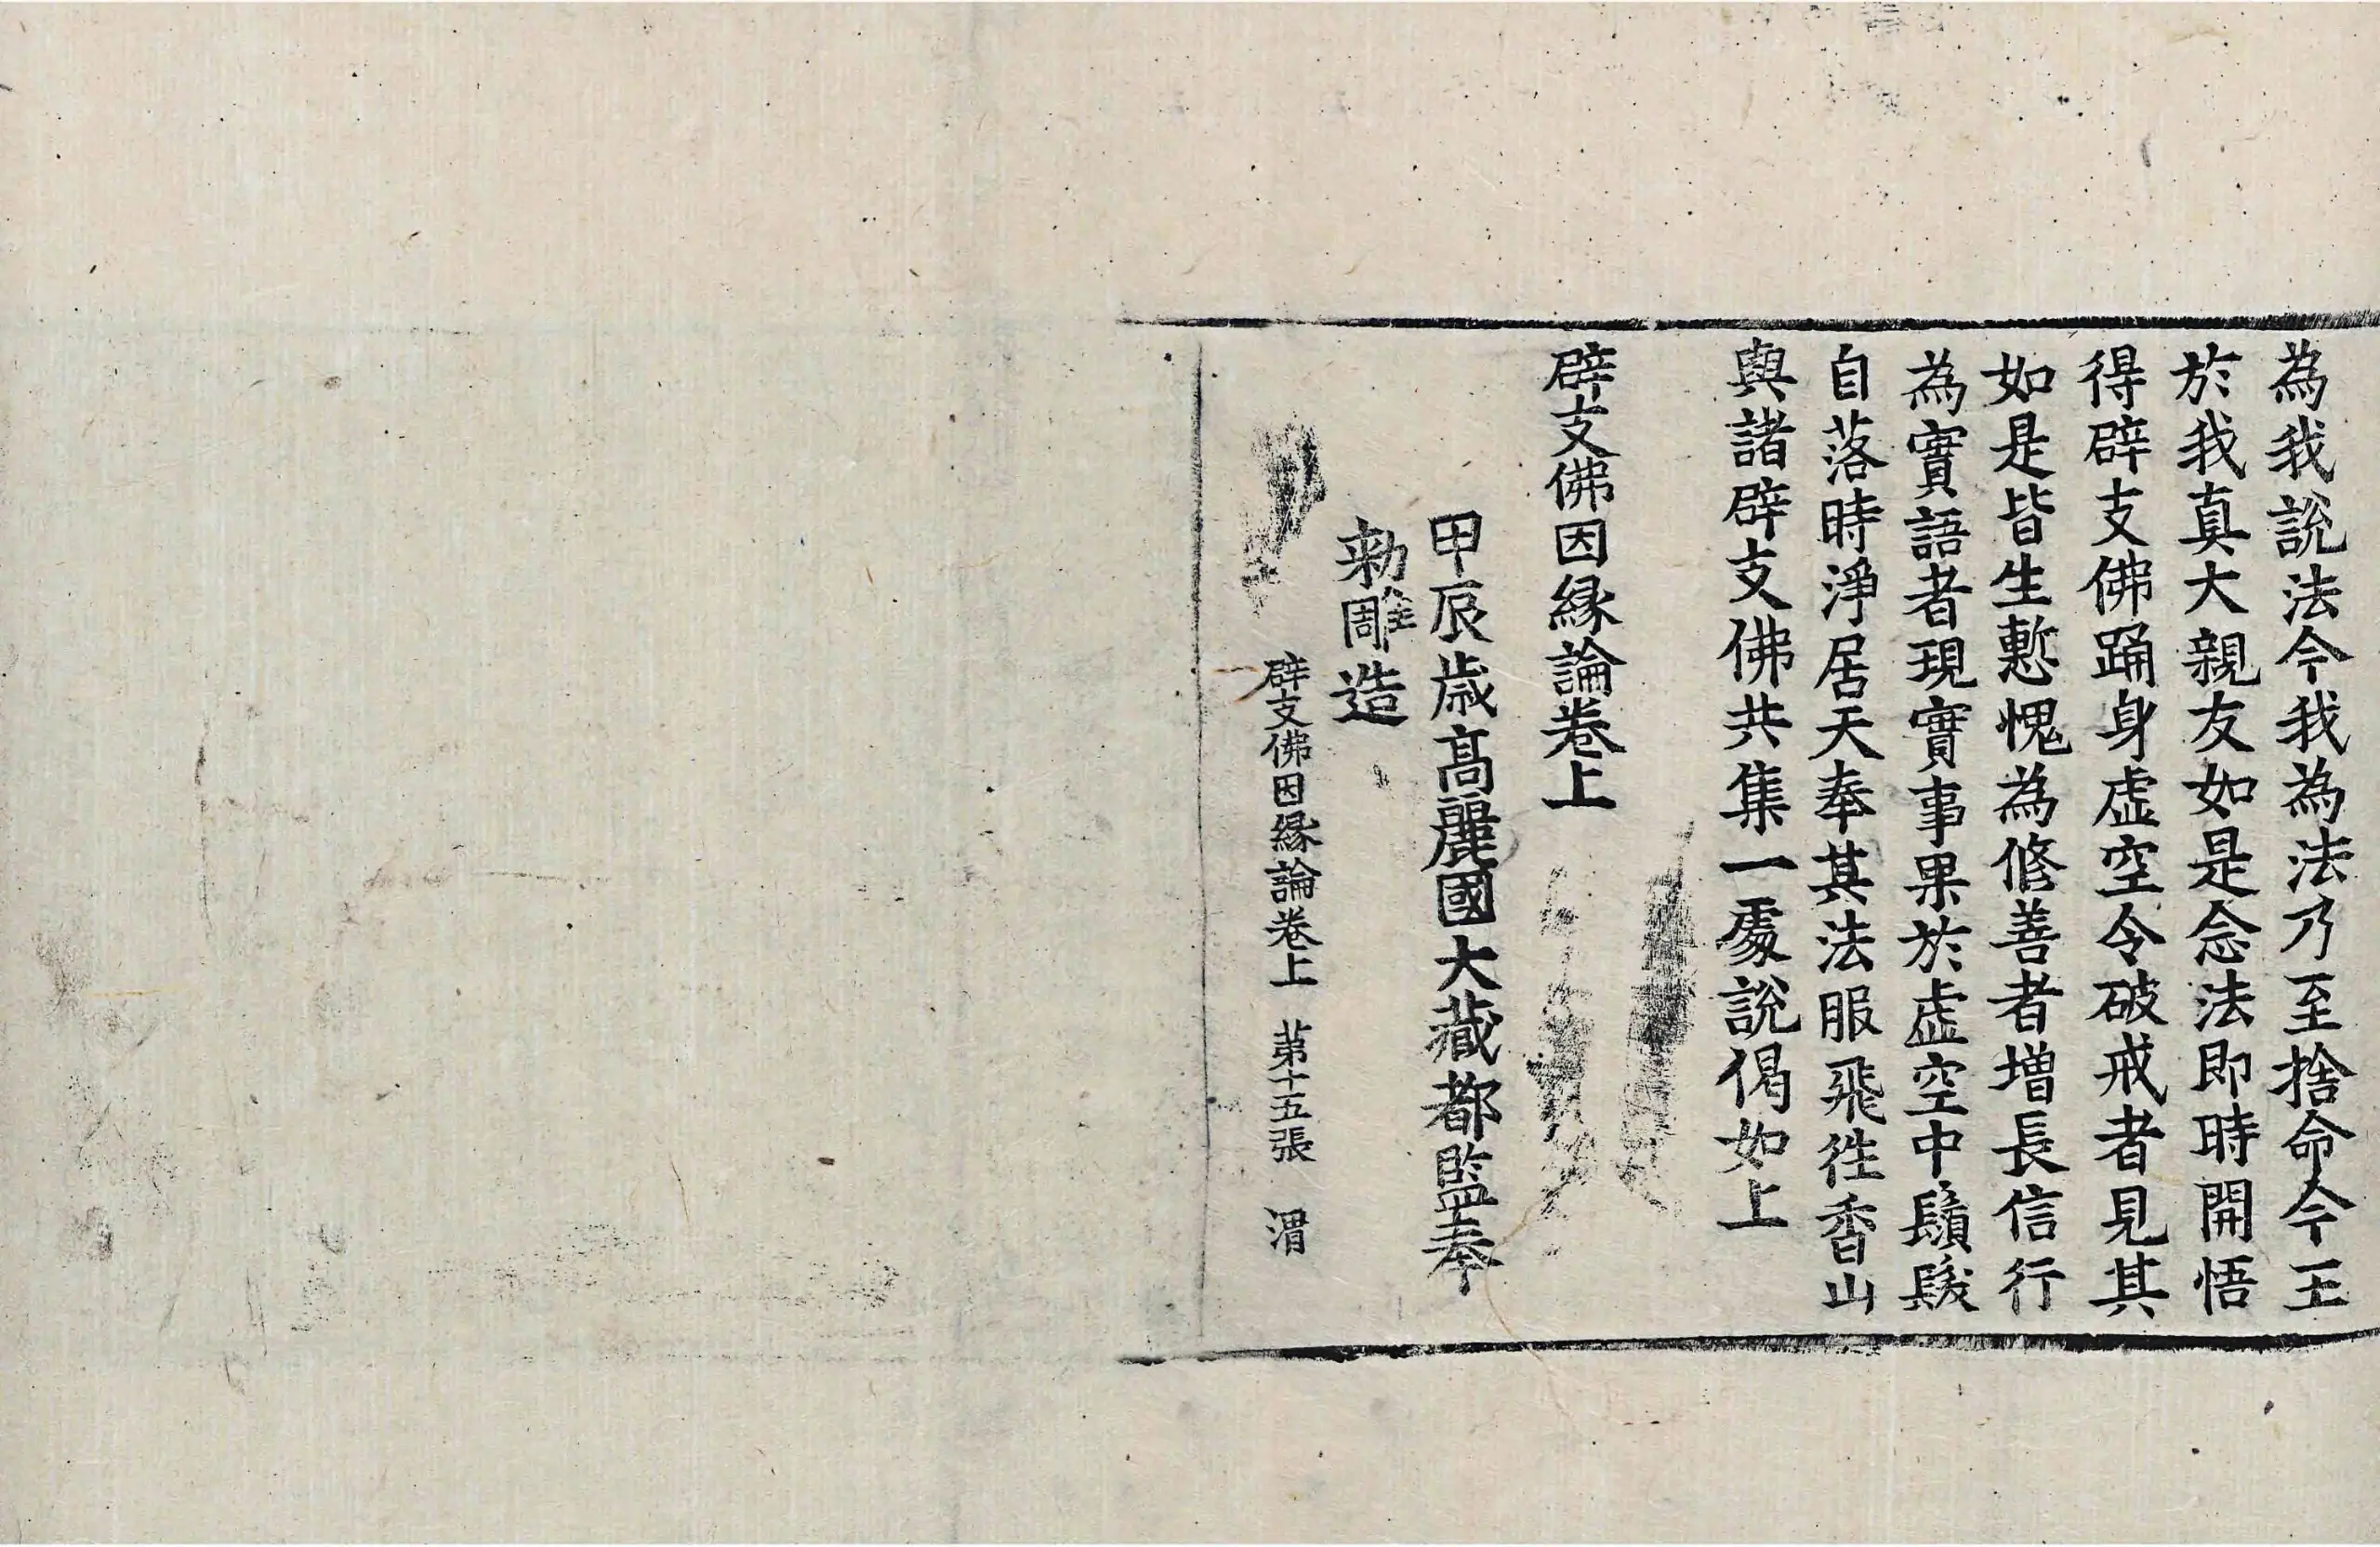 為我說法今我為法乃至捨命今王
於我真大親友如是念法即時開悟
得辟支佛踊身虛空令破戒者見其
如是皆生慙愧為修善者增長信行
為實語者現實事果於虛空中鬚髮
自落時淨居天奉其法服飛徃香山
與諸辟支佛共集一處說偈如上
辟支佛因緣論卷上
甲辰歲高麗國大藏都監奉
勑雕造
辟支佛因緣論卷上 第十五張 渭